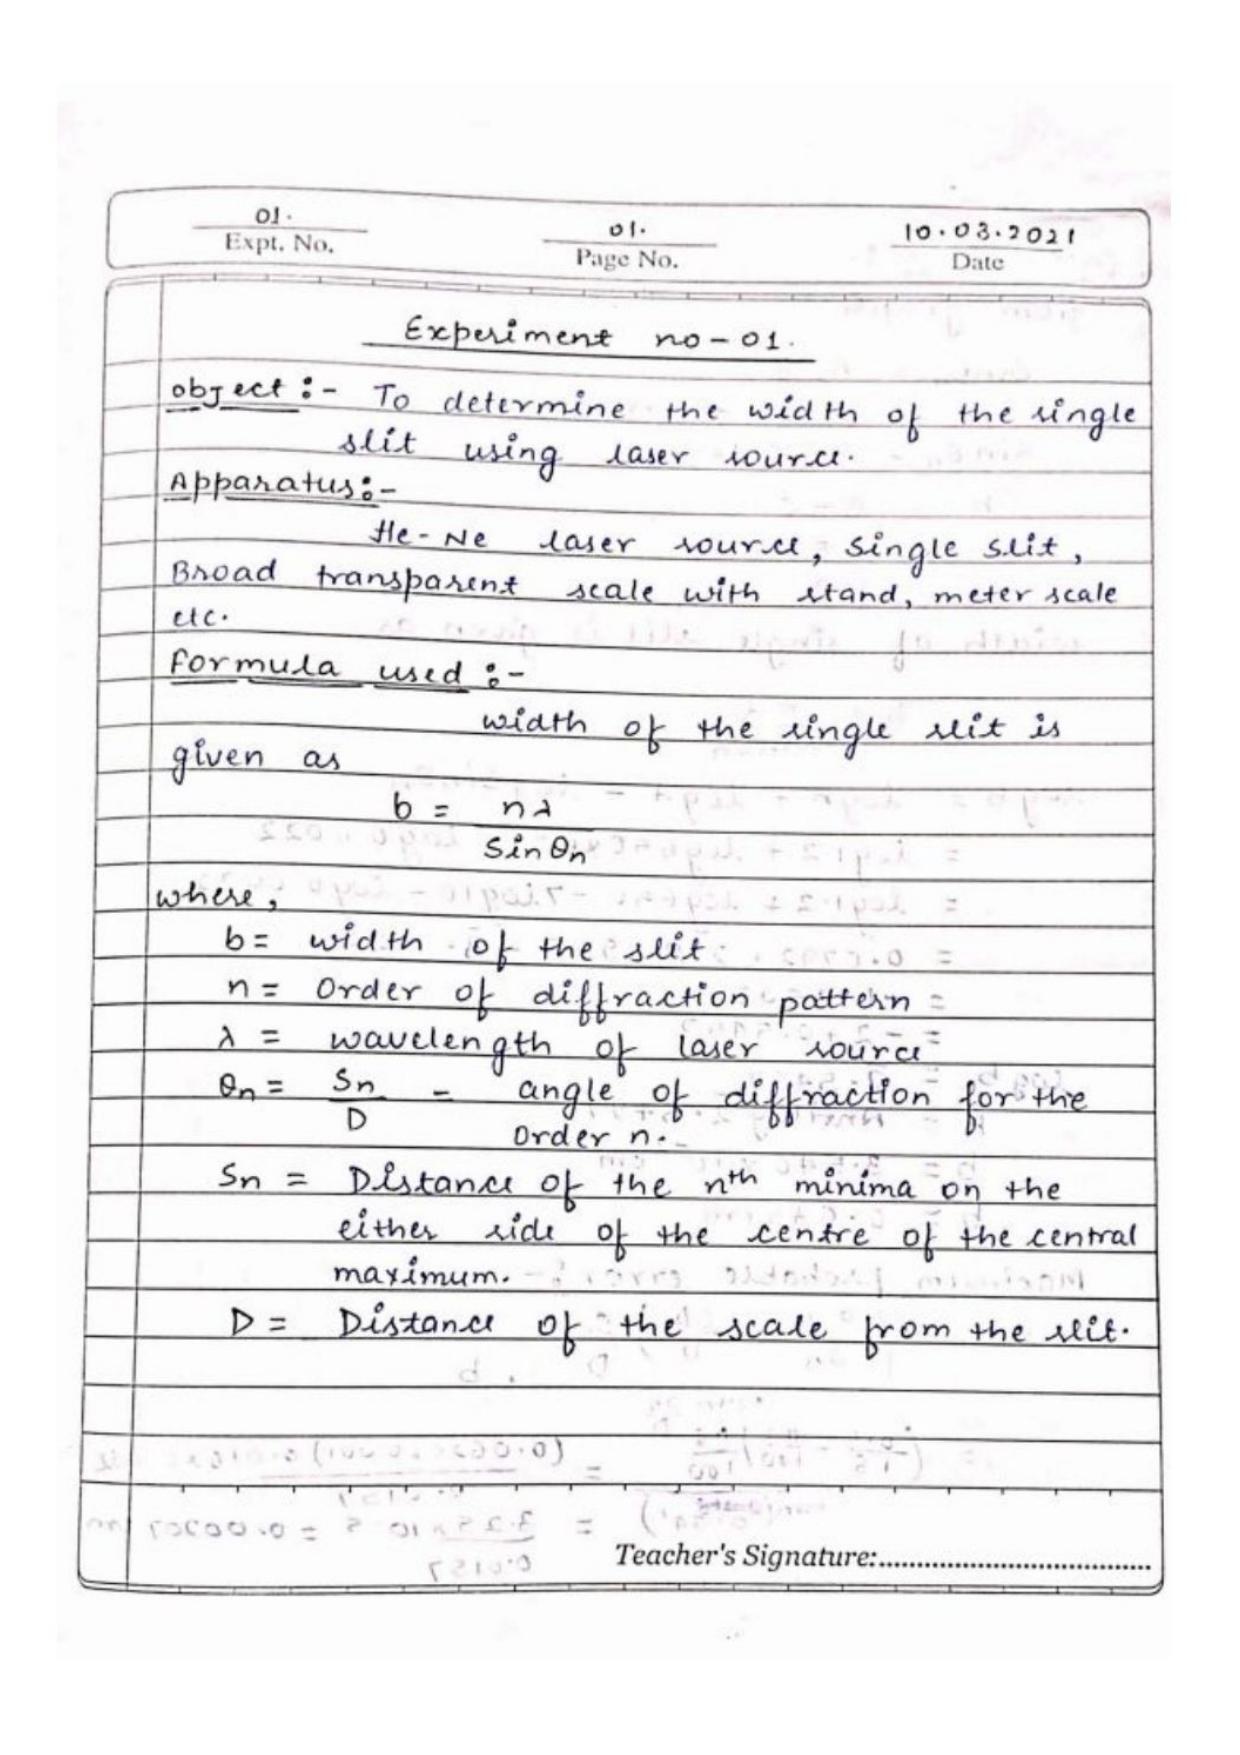 01.
Expt. No.
01.
Page No.
10.03.2021
Date
Experiment no-01.
object :- To determine the width of the single
slit using laser source.
Apparatus:-
He-Ne laser source, single slit,
Broad transparent scale with stand, meter scale
etc.
Formula used :-
width of the single slit is
given as
b = nλ
Sinθn
where,
b = width of the slit.
n = Order of diffraction pattern
λ = wavelength of laser source
θn = Sn/D - angle of diffraction for the
Order n.
Sn = Distance of the nth minima on the
either side of the centre of the central
maximum.
D = Distance of the scale from the slit.
Teacher's Signature:................................